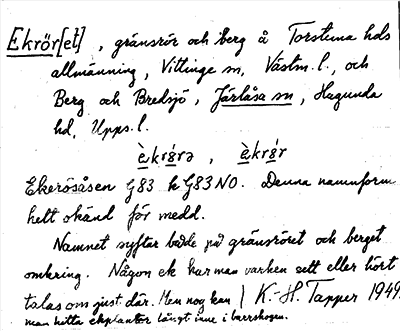 Ekrör[et], gränsrör och berg å Torstuna hds
allmänning, Vittinge sn, Västm. l., och
Berg och Bredsjö, Järlåsa sn, Hagunda
hd, Upps. l.
è̀krǿrə, è̀krǿr
Ekerösåsen G83 k G83 NO. Denna namnform
helt okänd för medd.
Namnet syftar både på gränsröret och berget
omkring. Någon ek har man varken sett eller hört
talas om just där. Men nog kan / K.-H. Tapper 1949.
man hitta ekplantor långt inne i barrskogen.